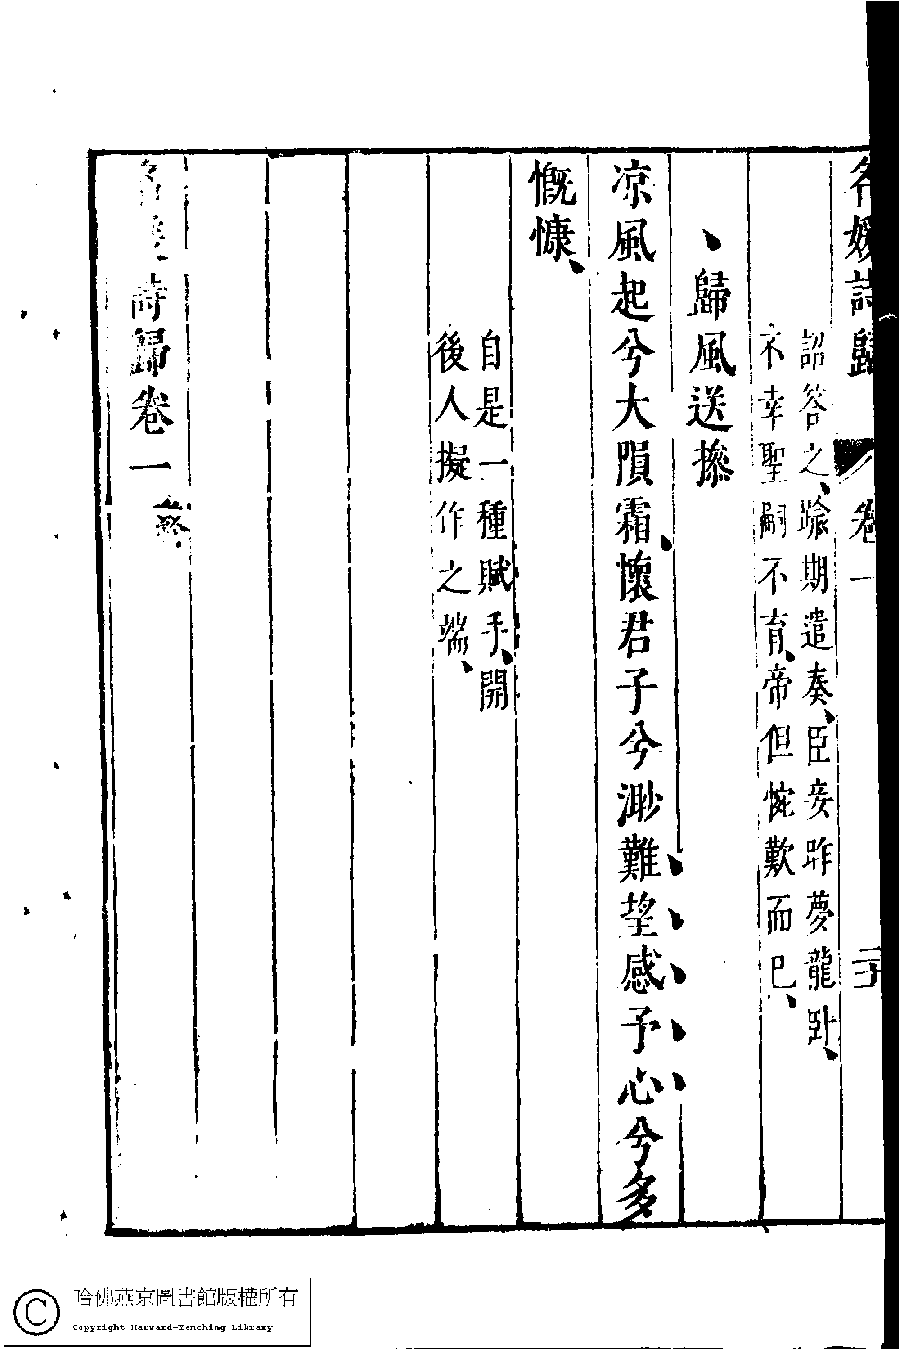 名媛詩歸 卷一 二十
詔答之、踰期遣奏、臣妾昨夢龍卧、
不幸聖嗣不育、帝但惋歎而已、
、歸風送操
凉風起兮大隕霜、懷君子兮渺難望、感予心兮多
慨慷、
自是一種賦手、開
後人擬作之端、
名媛詩歸卷一 終
哈佛燕京圖書館版權所有
Copyright Harvard-Yenching Library